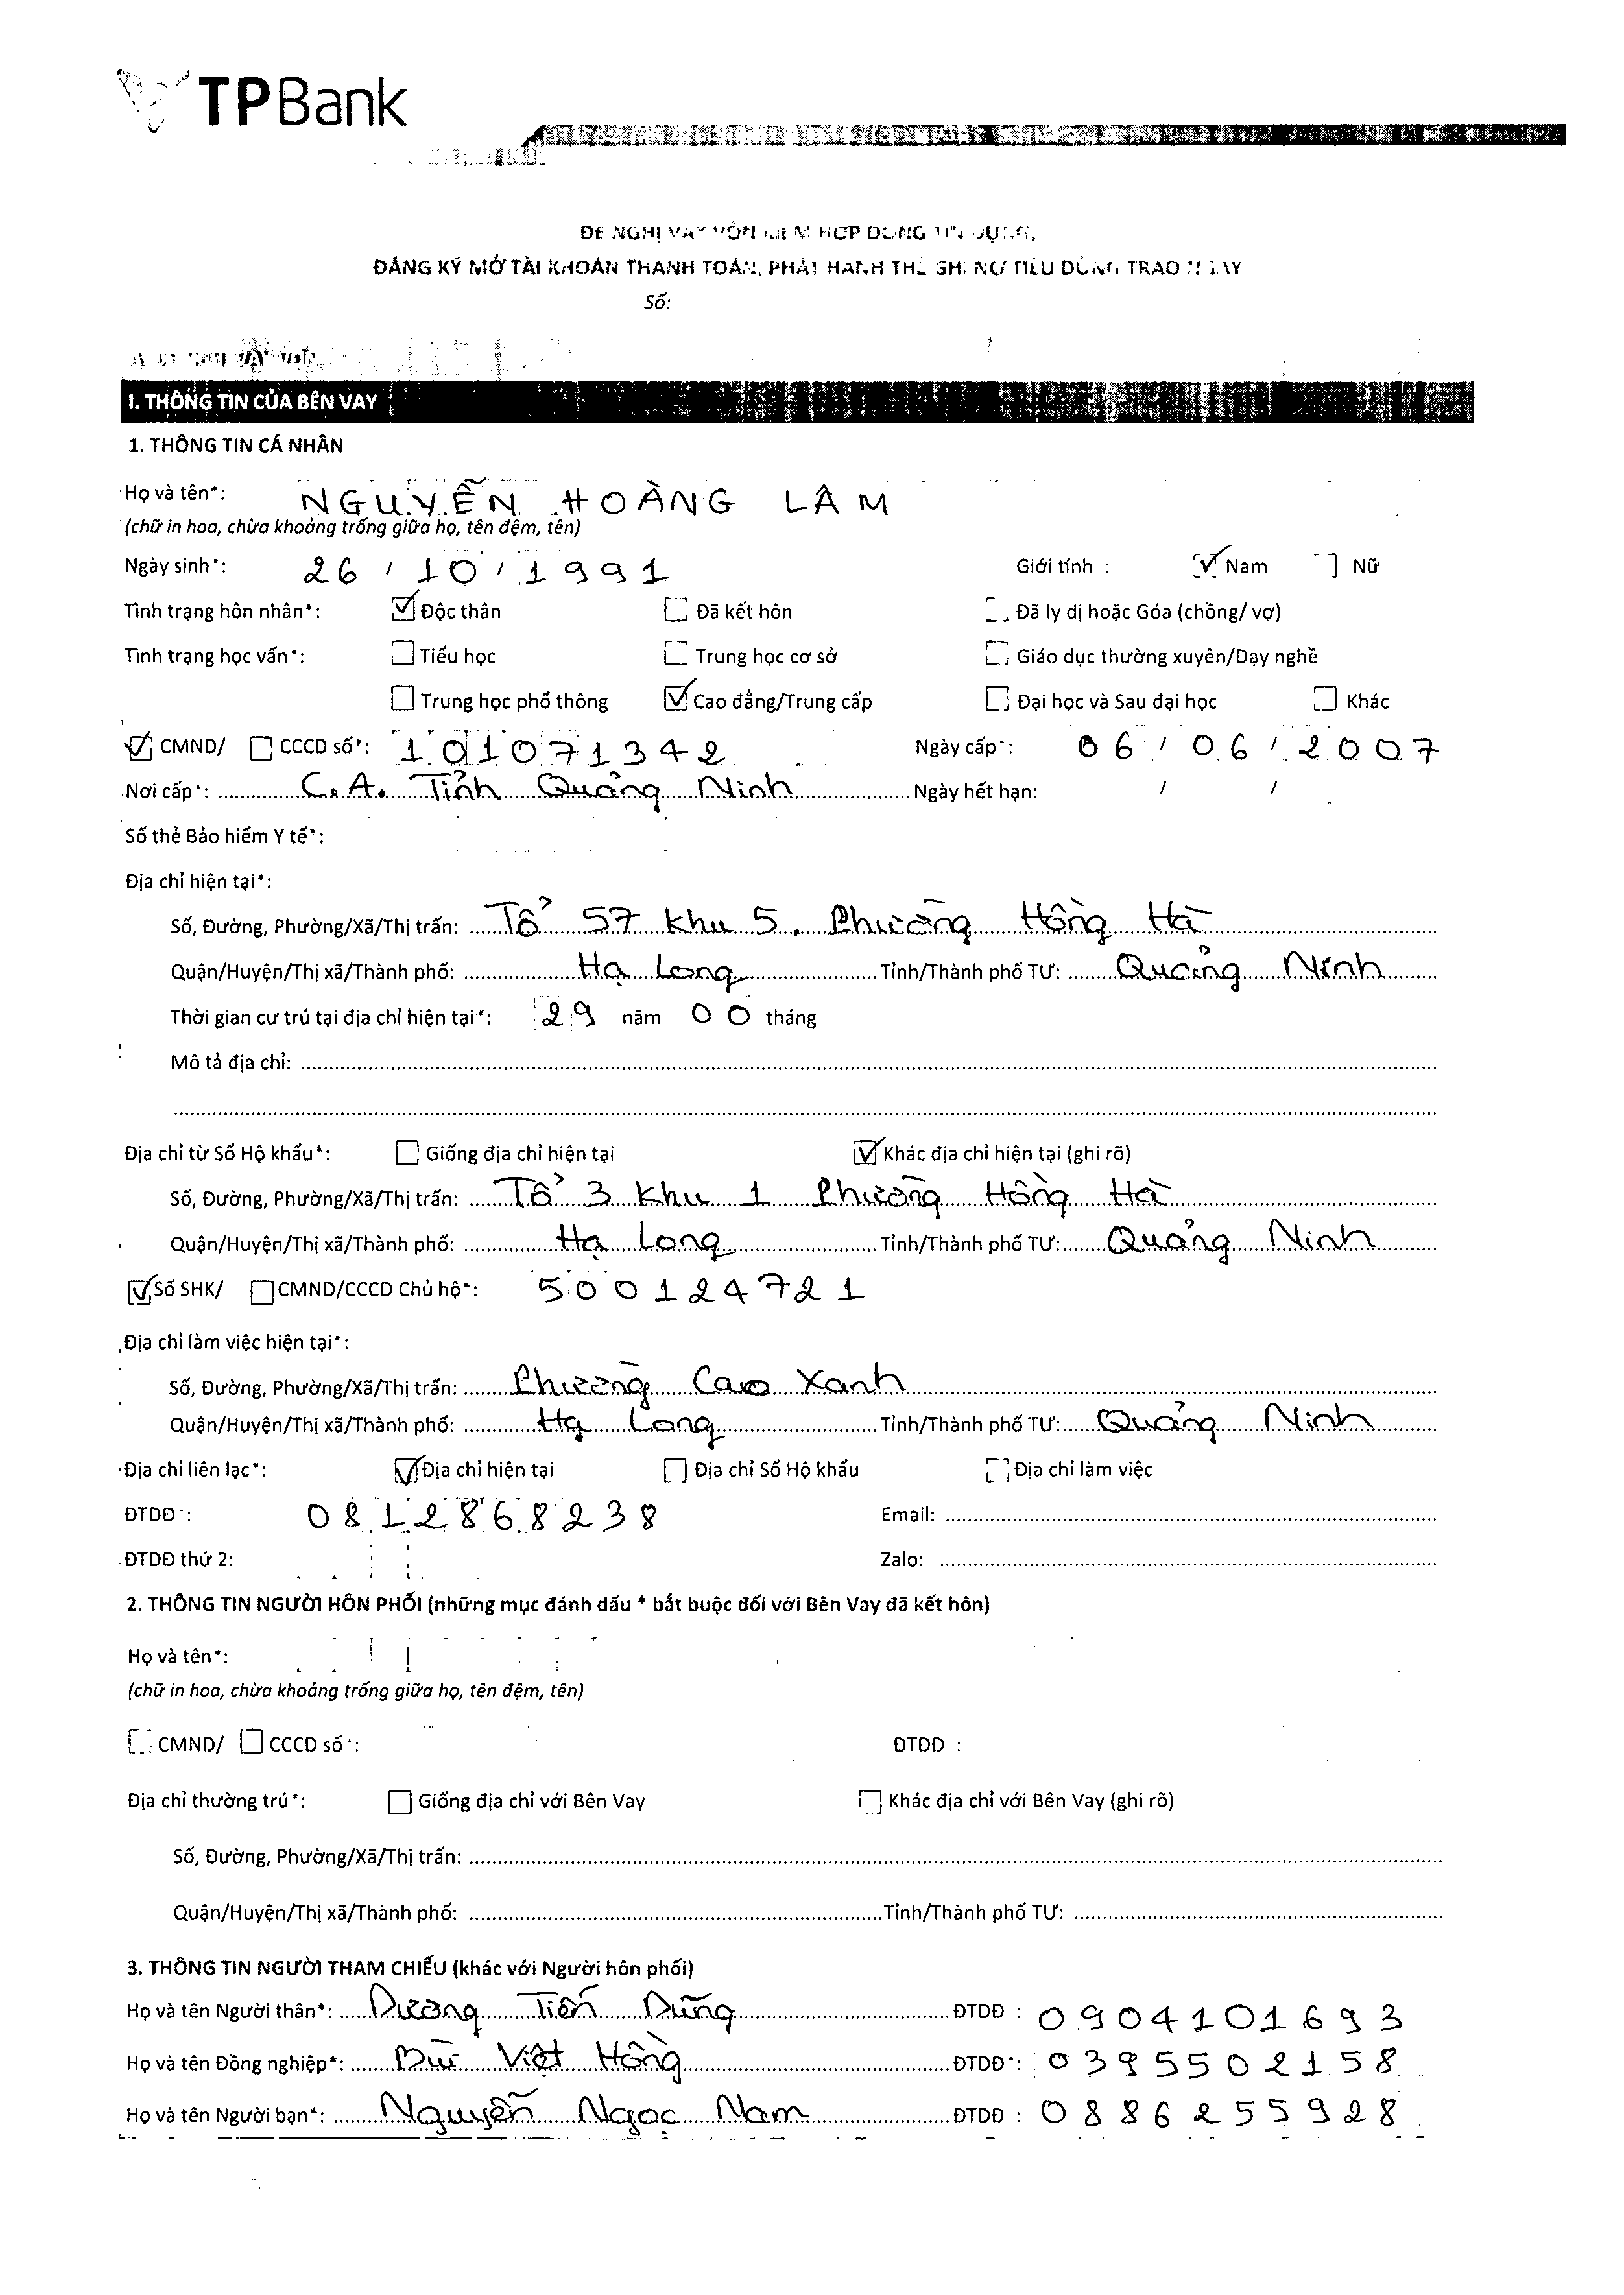 TPBank
ĐỀ NGHỊ VAY VỐN KIÊM HỢP ĐỒNG TÍN DỤNG,
ĐĂNG KÝ MỞ TÀI KHOẢN THANH TOÁN, PHÁT HÀNH THẺ GHI NỢ TIÊU DÙNG TRAO NGAY
Số:
I. THÔNG TIN CỦA BÊN VAY
1. THÔNG TIN CÁ NHÂN
Họ và tên*: NGUYỄN HOÀNG LÂM
(chữ in hoa, chừa khoảng trống giữa họ, tên đệm, tên)
Ngày sinh*: 26 / 10 / 1991 Giới tính : Nam Nữ
Tình trạng hôn nhân*: Độc thân Đã kết hôn Đã ly dị hoặc Góa (chồng/ vợ)
Tình trạng học vấn*: Tiểu học Trung học cơ sở Giáo dục thường xuyên/Dạy nghề
Trung học phổ thông Cao đẳng/Trung cấp Đại học và Sau đại học Khác
CMND/ CCCD số*: 101071342 Ngày cấp*: 06 / 06 / 2007
Nơi cấp*: C.A. Tỉnh Quảng Ninh Ngày hết hạn: / /
Số thẻ Bảo hiểm Y tế*:
Địa chỉ hiện tại*:
Số, Đường, Phường/Xã/Thị trấn: Tổ 57 khu 5. Phường Hồng Hà
Quận/Huyện/Thị xã/Thành phố: Hạ Long Tỉnh/Thành phố TƯ: Quảng Ninh
Thời gian cư trú tại địa chỉ hiện tại*: 29 năm 00 tháng
Mô tả địa chỉ:
Địa chỉ từ Sổ Hộ khẩu*: Giống địa chỉ hiện tại Khác địa chỉ hiện tại (ghi rõ)
Số, Đường, Phường/Xã/Thị trấn: Tổ 3 khu 1 Phường Hồng Hà
Quận/Huyện/Thị xã/Thành phố: Hạ Long Tỉnh/Thành phố TƯ: Quảng Ninh
Số SHK/ CMND/CCCD Chủ hộ*: 500124721
Địa chỉ làm việc hiện tại*:
Số, Đường, Phường/Xã/Thị trấn: Phường Cao Xanh
Quận/Huyện/Thị xã/Thành phố: Hạ Long Tỉnh/Thành phố TƯ: Quảng Ninh
Địa chỉ liên lạc*: Địa chỉ hiện tại Địa chỉ Sổ Hộ khẩu Địa chỉ làm việc
ĐTDĐ*: 0812868238 Email:
ĐTDĐ thứ 2: Zalo:
2. THÔNG TIN NGƯỜI HÔN PHỐI (những mục đánh dấu * bắt buộc đối với Bên Vay đã kết hôn)
Họ và tên*:
(chữ in hoa, chừa khoảng trống giữa họ, tên đệm, tên)
CMND/ CCCD số*: ĐTDĐ :
Địa chỉ thường trú*: Giống địa chỉ với Bên Vay Khác địa chỉ với Bên Vay (ghi rõ)
Số, Đường, Phường/Xã/Thị trấn:
Quận/Huyện/Thị xã/Thành phố: Tỉnh/Thành phố TƯ:
3. THÔNG TIN NGƯỜI THAM CHIẾU (khác với Người hôn phối)
Họ và tên Người thân*: Dương Tiến Dũng ĐTDĐ : 0904101693
Họ và tên Đồng nghiệp*: Bùi Việt Hồng ĐTDĐ*: 0395502158
Họ và tên Người bạn*: Nguyễn Ngọc Nam ĐTDĐ : 0886255928